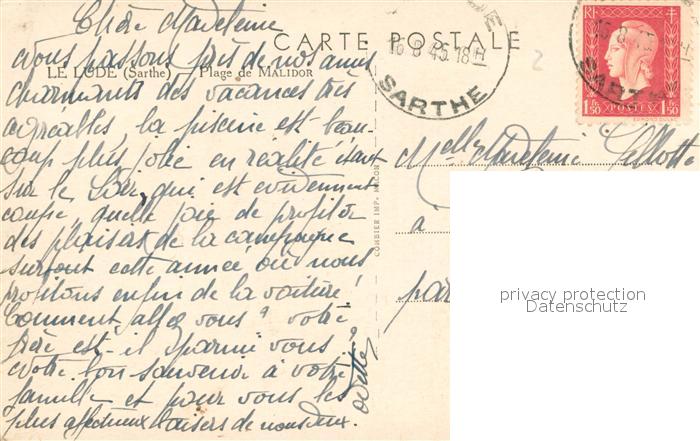 Chère Madeleine
CARTE POSTALE
nous passons près de nos amis
LE LUDE (Sarthe) Plage de MALIDOR
charmants des vacances très
agréables, la piscine est beau-
coup plus jolie en réalité étant
sur le Loir, qui est evidemment
coupé, quelle joie de profiter
des plaisirs de la campagne
surtout cette année, où nous
profitons enfin de la voiture!
Comment allez vous? votre
frère est-il parmi vous?
votre bon souvenir à votre
famille et pour vous les
plus affectueux baisers de nous deux.
Odette
COMBIER IMP. MACON
16 8 45 18H
SARTHE
RF
1F50 POSTES 1F50
SARTHE
Melle Madeleine
à
par
privacy protection
Datenschutz